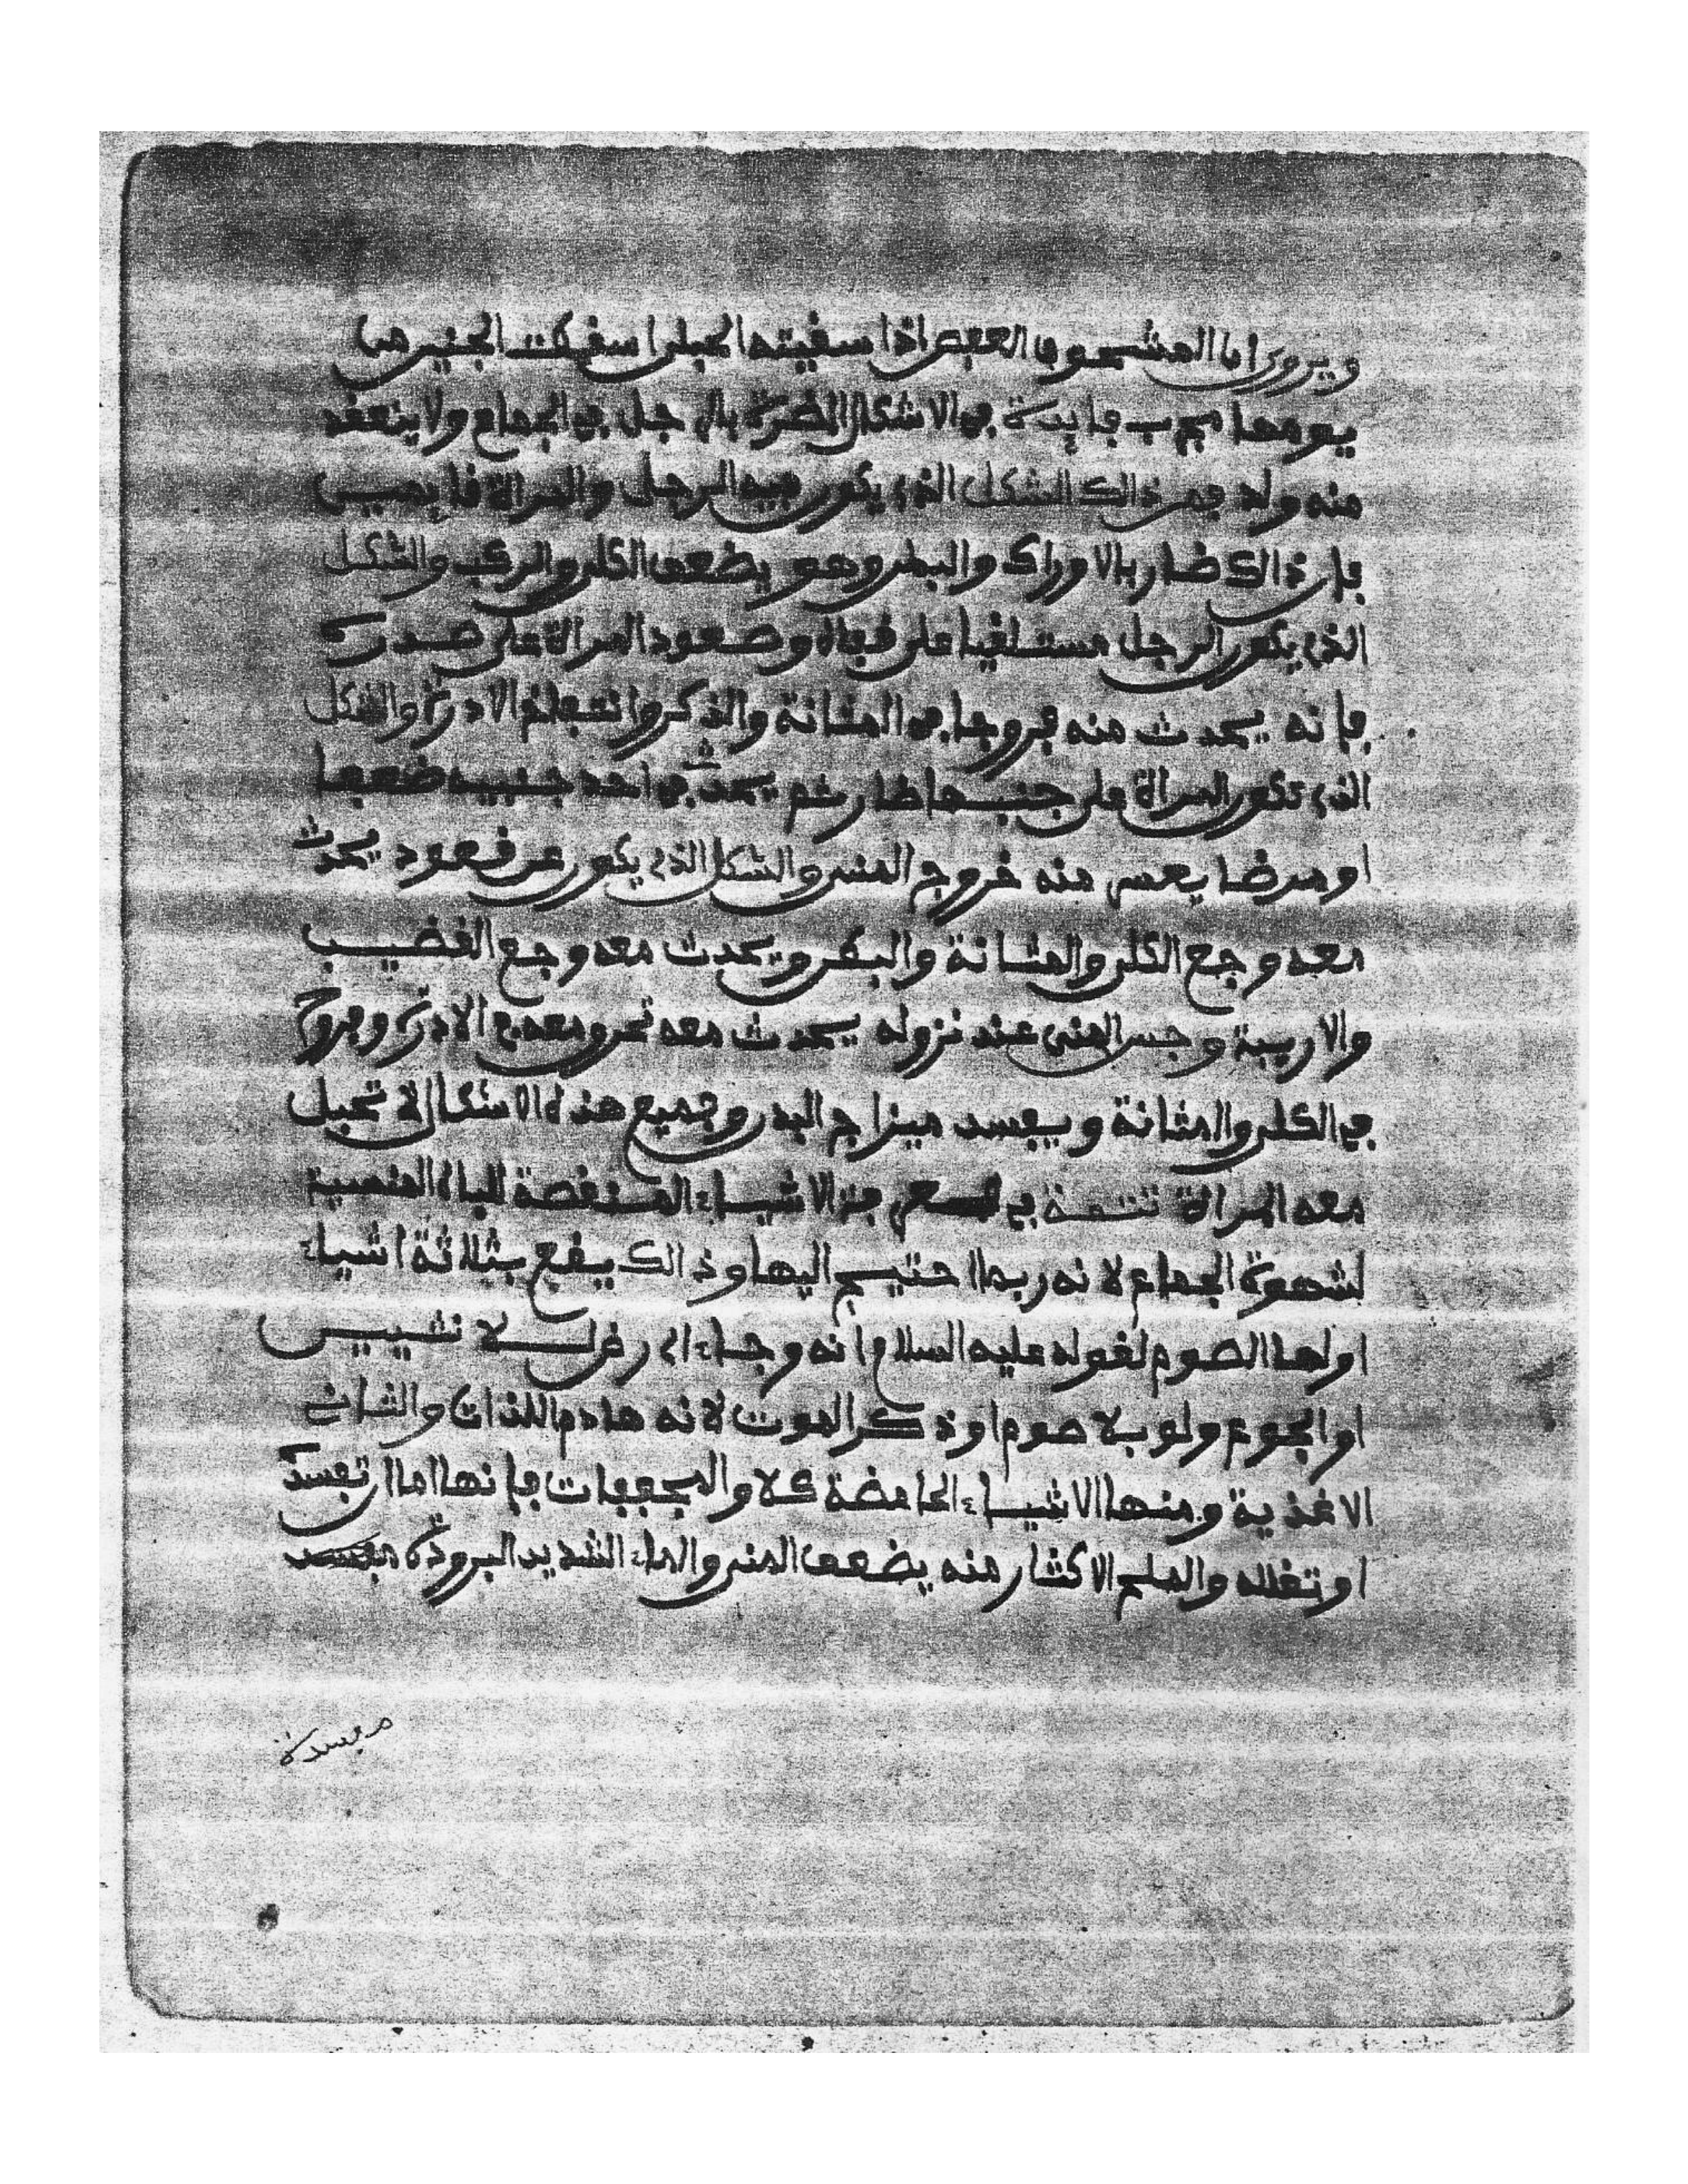 ويروى ان المشحون العفص اذا سقيته الحبلى اسقطت الجنين من
يومها مجرب فايدة في الاشكال المضرة بالرجل في الجماع ولا ينعقد
منه ولد فمن ذالك الشكل الذي يكون فيه الرجل والمراة قايمين
فان ذالك ضار بالاوراك والبطن وهو يضعف الكلى والركب والشكل
الذي يكون الرجل مستلقيا على قفاه وصعود المراة على صدره
فانه يحدث منه قروحا في المثانة والذكر وانتفاخ الادرة والشكل
الذي تكون المراة على جنبها ضار ثم يحدث في احد جنبيه ضعفا
او مرضا يعسر منه خروج المني والشكل الذي يكون عن قعود يحدث
معه وجع الكلى والمثانة والبطن ويحدث معه وجع القضيب
والاربية وحبس المني عند نزوله يحدث معه الادرة وقروح
في الكلى والمثانة ويفسد ميزاج البدن وجميع هذه الاشكال لا تحبل
معه المراة تتمة في الاشياء المنقصة للباه المنسية
لشهوة الجماع لانه ربما احتيج اليها وذالك يقع بثلاثة اشياء
اولها الصوم لقوله عليه السلام انه وجاء اي رض لانثيين
او الجوع ولو بلا صوم او ذكر الموت لانه هادم اللذات والثاني
الاغذية ومنها الاشياء الحامضة كلا والمجففات فانها اما ان تفسده
او تقلله والملح الاكثار منه يضعف المني والماء الشديد البرودة
مفسدة